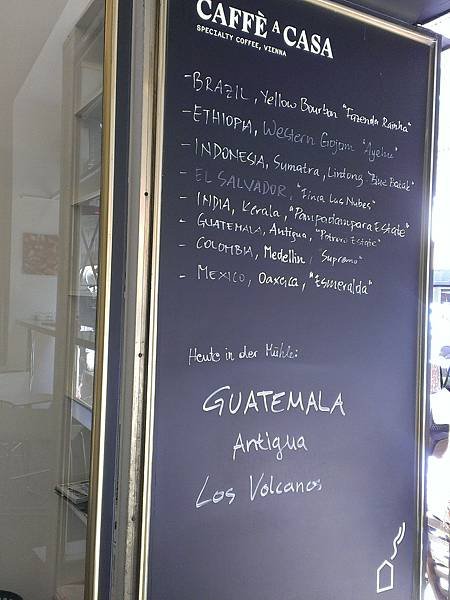 CAFFÈ A CASA
SPECIALTY COFFEE, VIENNA
- BRAZIL, Yellow Bourbon "Fazenda Rainha"
- ETHIOPIA, Western Gojam "Ayehu"
- INDONESIA, Sumatra, Lintong "Blue Batak"
- EL SALVADOR, "Finca Las Nubes"
- INDIA, Kerala, "Pampadampara Estate"
- GUATEMALA, Antigua, "Potrero Estate"
- COLOMBIA, Medellin, "Supremo"
- MEXICO, Oaxaca, "Esmeralda"
Heute in der Mühle:
GUATEMALA
Antigua
Los Volcanos